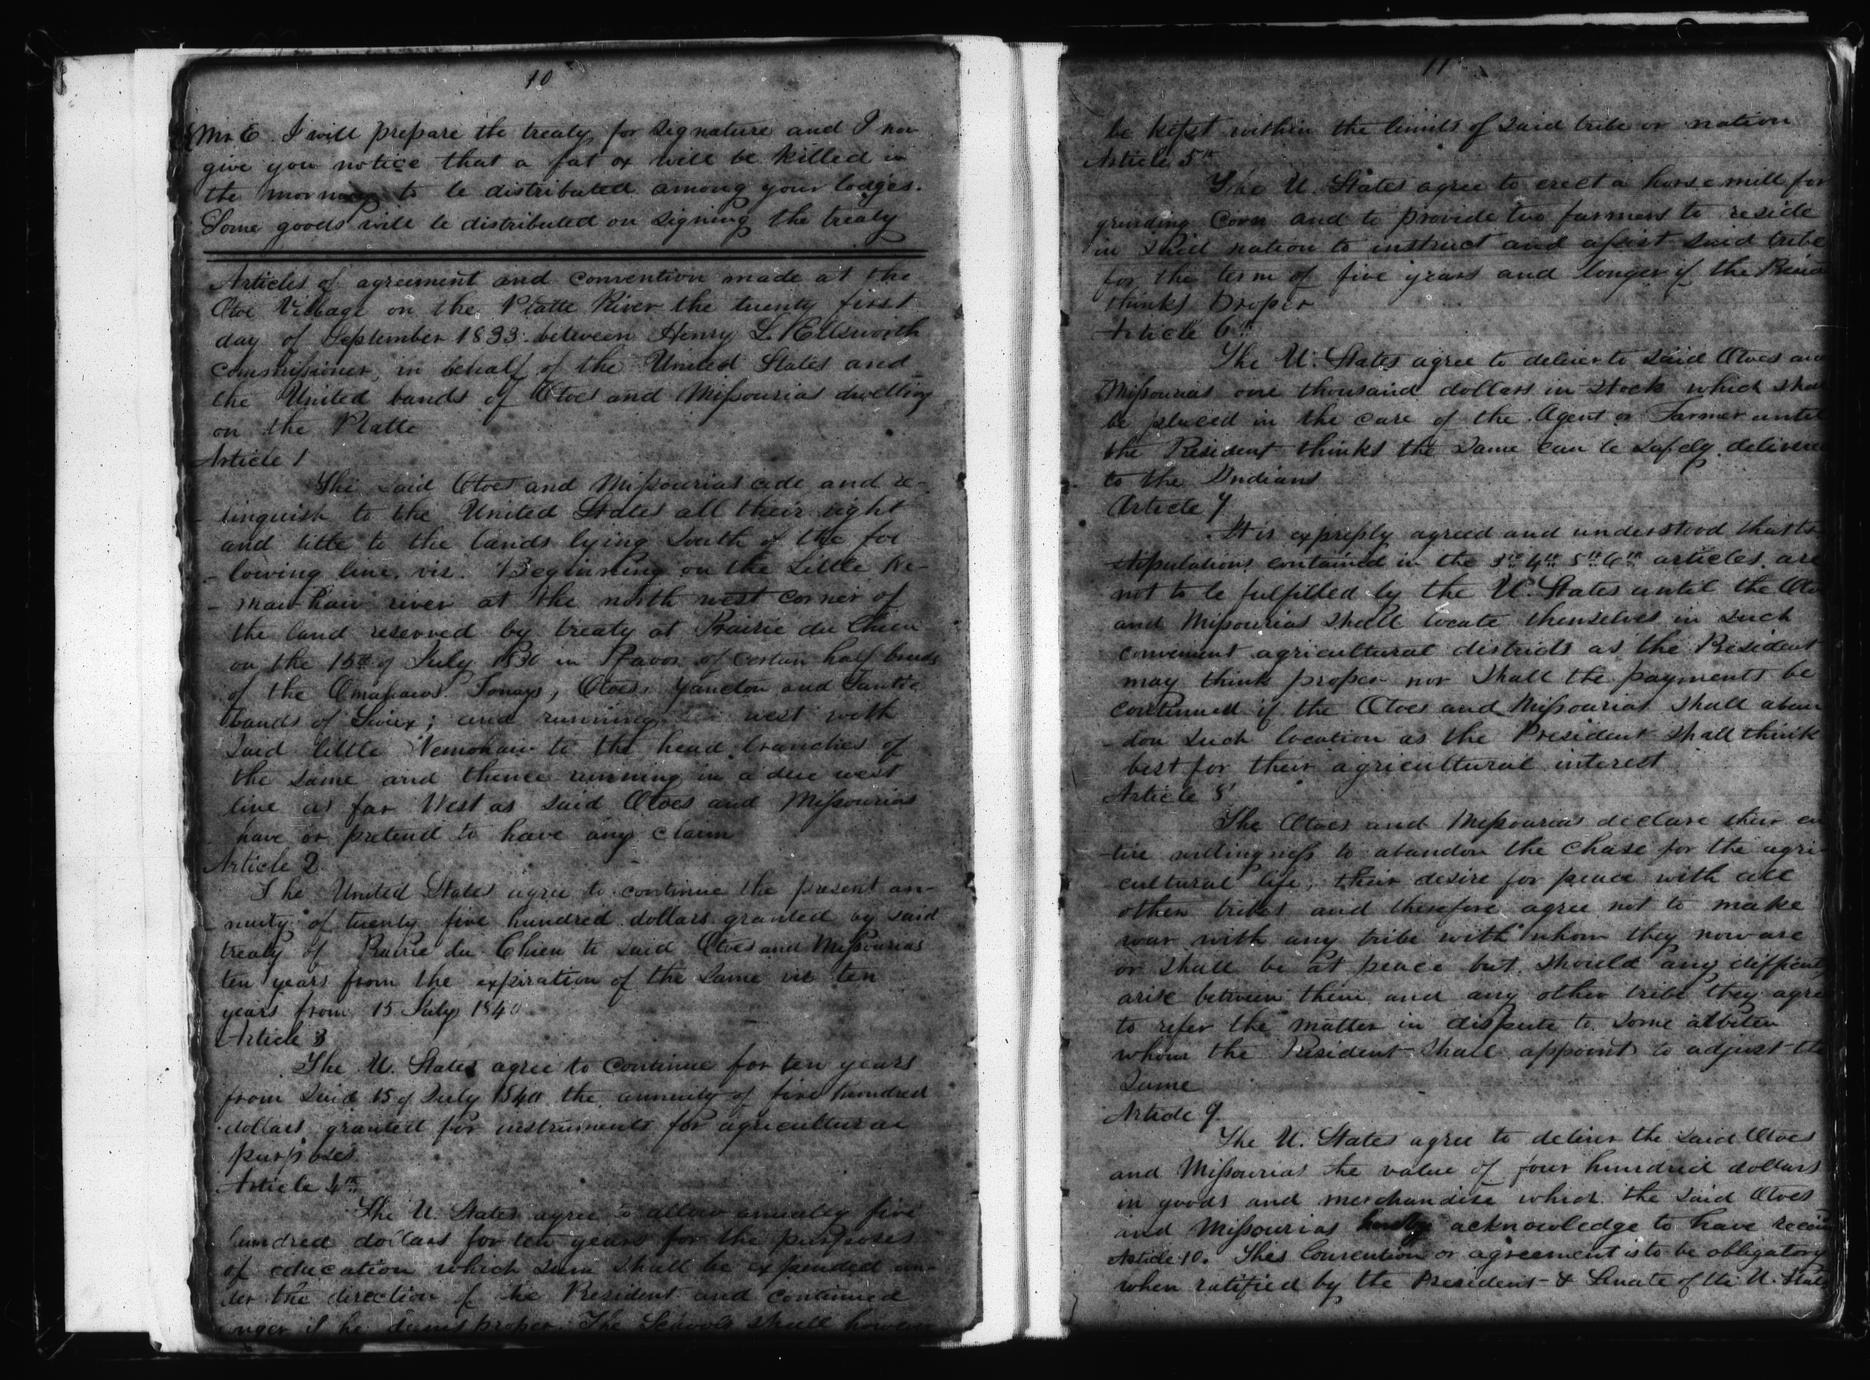 10
Mr. E. I will prepare the treaty for signature and I now
give you notice that a fat ox will be killed in
the morning to be distributed among your lodges.
Some goods will be distributed on signing the treaty
Articles of agreement and convention made at the
Otoe Village on the Platte River the twenty first
day of September 1833 between Henry L. Ellsworth
commissioner, in behalf of the United States and
the United bands of Otoes and Missourias dwelling
on the Platte
Article 1
The said Otoes and Missourias cede and re-
linquish to the United States all their right
and title to the lands lying South of the fol
lowing line, viz. Beginning on the Little Ne-
-maw haw river at the north west corner of
the land reserved by treaty at Prairie du Chien
on the 15th of July 1830 in favor of certain half breeds
of the Omahaws Ioways, Otoes, Yancton and Santie
bands of Sioux; and running west with
said little Nemohaw to the head branches of
the same and thence running in a due west
line as far West as said Otoes and Missourias
have or pretend to have any claim
Article 2
The United States agree to continue the present an-
nuity of twenty five hundred dollars granted by said
treaty of Prairie du Chien to said Otoes and Missourias
ten years from the expiration of the same viz ten
years from 15 July 1840
Article 3
The U. States agree to continue for ten years
from said 15 of July 1840 the annuity of five hundred
dollars granted for instruments for agricultural
purposes
Article 4th
The U. States agree to allow annually five
hundred dollars for ten years for the purposes
of education which sum shall be expended un-
der the direction of the President and continued
longer if he deems proper. The Schools shall however
11
be kept within the limits of said tribe or nation
Article 5th
The U. States agree to erect a horse mill for
grinding corn and to provide two farmers to reside
in said nation to instruct and assist said tribe
for the term of five years and longer if the Presid
thinks proper
Article 6th
The U. States agree to deliver to said Otoes and
Missourias one thousand dollars in stock which shall
be placed in the care of the Agent or Farmer until
the President thinks the same can be safely delivered
to the Indians
Article 7
It is expressly agreed and understood that the
stipulations contained in the 3rd 4th 5th 6th articles are
not to be fulfilled by the U. States until the Otoes
and Missourias shall locate themselves in such
convenient agricultural districts as the President
may think proper nor shall the payments be
continued if the Otoes and Missourias shall aban
-don such location as the President shall think
best for their agricultural interest
Article 8
The Otoes and Missourias declare their en
-tire willingness to abandon the chase for the agri-
cultural life; their desire for peace with all
other tribes and therefore agree not to make
war with any tribe with whom they now are
or shall be at peace but should any difficulty
arise between them and any other tribe they agree
to refer the matter in dispute to some arbiter
whom the President shall appoint to adjust the
same
Article 9
The U. States agree to deliver the said Otoes
and Missourias the value of four hundred dollars
in goods and merchandise which the said Otoes
and Missourias hereby acknowledge to have received
Article 10. This Convention or agreement is to be obligatory
when ratified by the President & Senate of the U. States